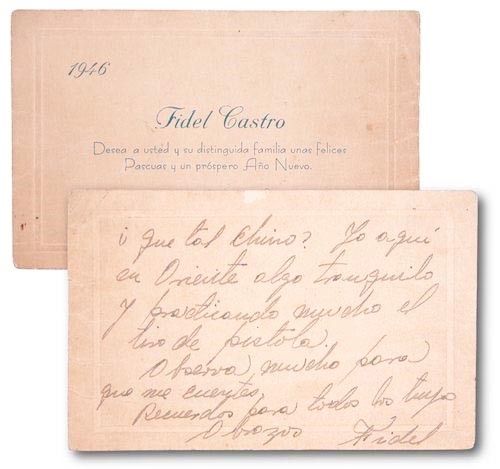 1946
Fidel Castro
Desea a usted y su distinguida familia unas felices
Pascuas y un próspero Año Nuevo.
¿ que tal Chino? Yo aquí
en Oriente algo tranquilo
y practicando mucho el
tiro de pistola.
Observa mucho para
que me cuentes.
Recuerdos para todos los tuyos
Abrazos Fidel